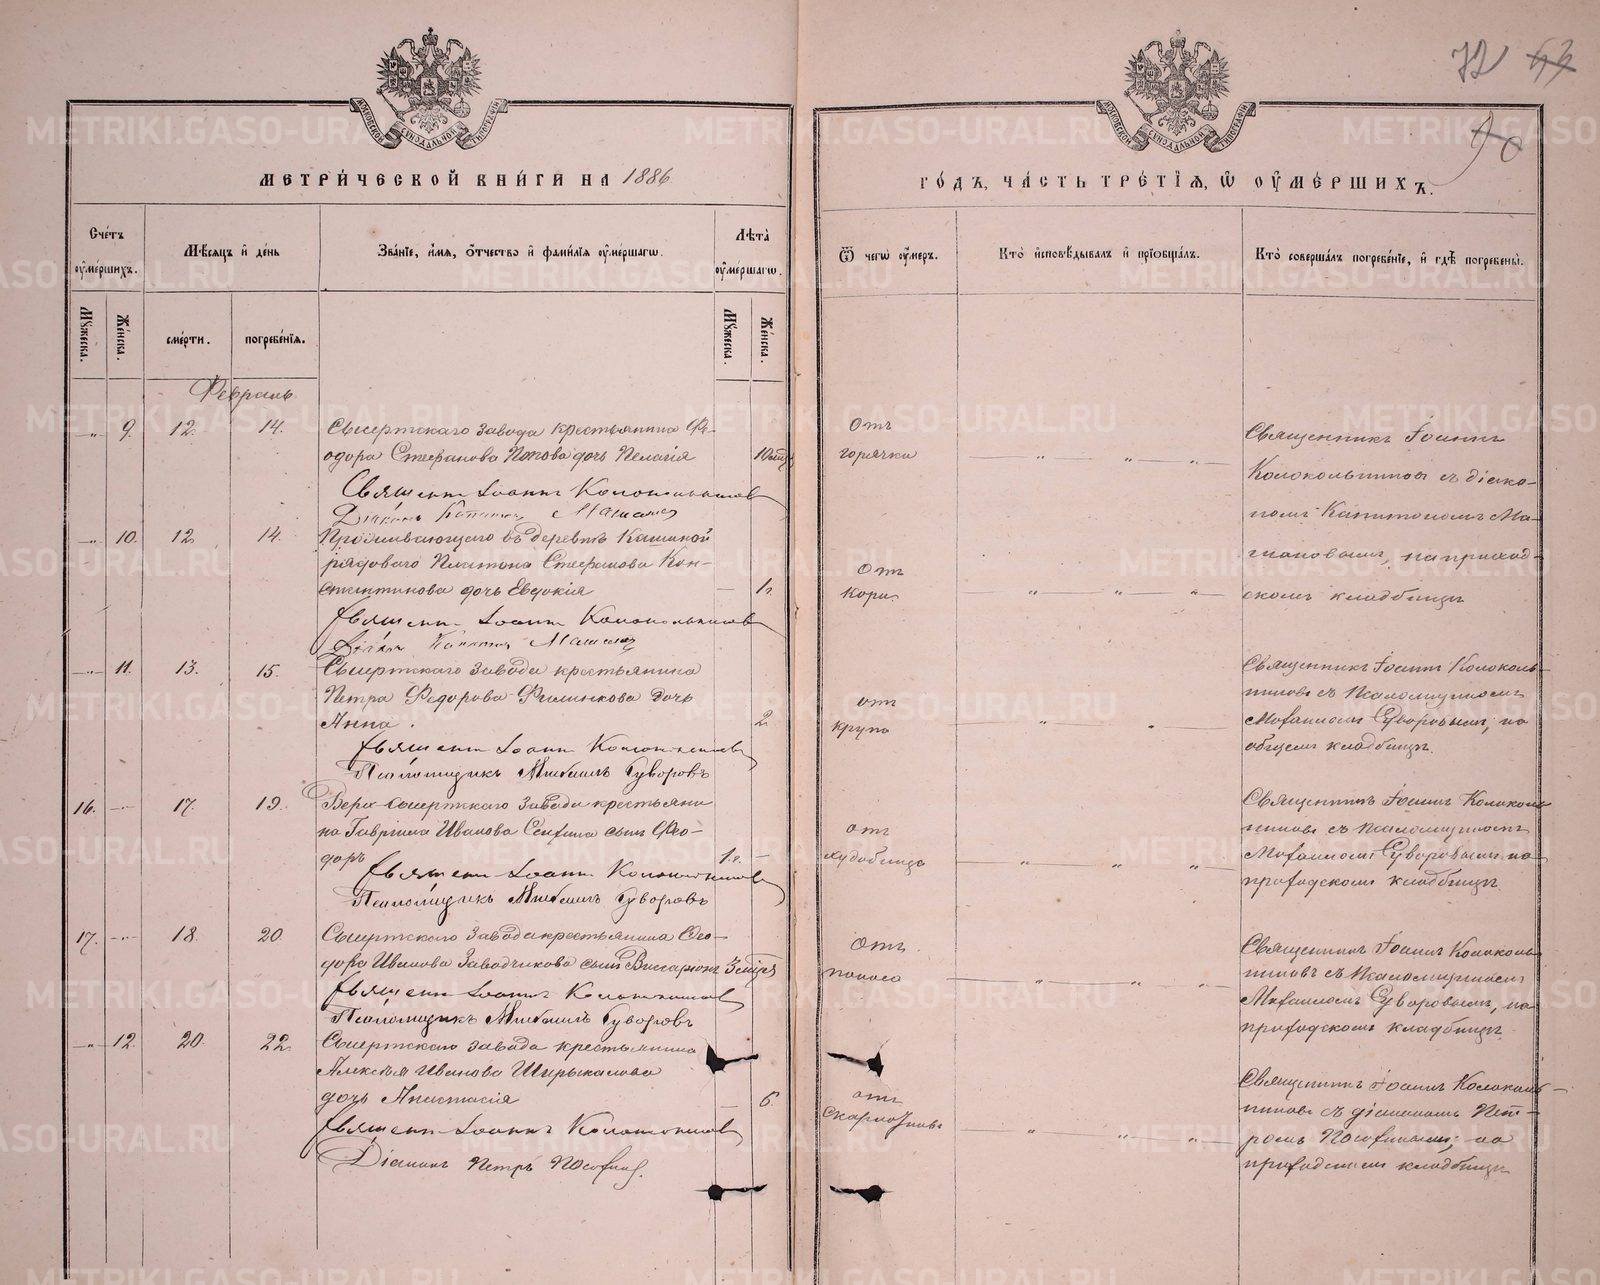 72 43
90
МОСКОВСКОЙ СѴНОДАЛЬНОЙ ТИПОГРАФІИ
МОСКОВСКОЙ СѴНОДАЛЬНОЙ ТИПОГРАФІИ
МЕТРИ́ЧЕСКОЙ КНИ́ГИ НА 1886
ГО́ДЪ, ЧА́СТЬ ТРЕ́ТІѦ, Ѡ҆ ОУ҆МЕ́РШИХЪ.
Сче́тъ оу҆ме́ршихъ.
Мѣ́сѧцъ и҆ де́нь
Зва́нїе, и҆́мѧ, ѻ҆́тчество и҆ фами́лїѧ оу҆ме́ршагѡ.
Лѣта̀ оу҆ме́ршагѡ.
Ѿ чегѡ̀ оу҆́меръ.
Кто̀ и҆сповѣ́дывалъ и҆ прїѡбща́лъ.
Кто̀ соверша́лъ погребе́нїе, и҆ гдѣ̀ погребены̀.
Мꙋ́жеска.
Же́нска.
сме́рти.
погребе́нїѧ.
Мꙋ́жеска.
Же́нска.
Февраль
-"- 9. 12. 14. Сысертскаго завода крестьянина Ѳе-
одора Стефанова Попова дочь Пелагія 10 мѣс
Священ. Іоаннъ Колокольниковъ
Діаконъ Капитонъ
Отъ
горячки
Священникъ Іоаннъ
Колокольниковъ съ діако-
номъ Капитономъ Ма-
на приход-
скомъ кладбищѣ
-"- 10. 12. 14. Проживающаго въ деревнѣ Кашиной
рядоваго Платона Стефанова Кон-
стантинова дочь Евдокія 1 г.
Священ. Іоаннъ Колокольниковъ
Діаконъ Капитонъ
Отъ
кори.
-"- 11. 13. 15. Сысертскаго завода крестьянина
Петра Ѳедорова Филинкова дочь
Анна. 2.
Священ. Іоаннъ Колокольниковъ
Псаломщикъ Михаилъ Суворовъ
отъ
крупа
Священникъ Іоаннъ Коколь-
никовъ съ псаломщикомъ
Михаиломъ Суворовымъ, на
общемъ кладбищѣ.
16. -"- 17. 19. Верх-Сысертскаго завода крестьяни
на Гавріила Иванова сынъ Ѳео-
доръ 1 г.
Священ. Іоаннъ Колокольниковъ
Псаломщикъ Михаилъ Суворовъ
отъ
худобища
Священникъ Іоаннъ Колоколь
никовъ съ псаломщикомъ
Михаиломъ Суворовымъ на
приходскомъ кладбищѣ.
17. -"- 18. 20. Сысертскаго завода крестьянина Ѳео-
дора Иванова Заводчикова сынъ Висаріонъ 3 мѣся
Священ. Іоаннъ Колокольниковъ
Псаломщикъ Михаилъ Суворовъ
Отъ
поноса
Священникъ Іоаннъ Колоколь
никовъ съ псаломщикомъ
Михаиломъ Суворовымъ, на
приходскомъ кладбищѣ.
-"- 12. 20. 22. Сысертскаго завода крестьянина
Алексѣя Иванова Ширыкалова
дочь Анастасія 6.
Священ. Іоаннъ Колокольниковъ
Діаконъ Петръ
отъ
скарлатины
Священникъ Іоаннъ Колоколь-
никовъ съ діакономъ Пет-
ромъ на
приходскомъ кладбищѣ
METRIKI.GASO-URAL.RU